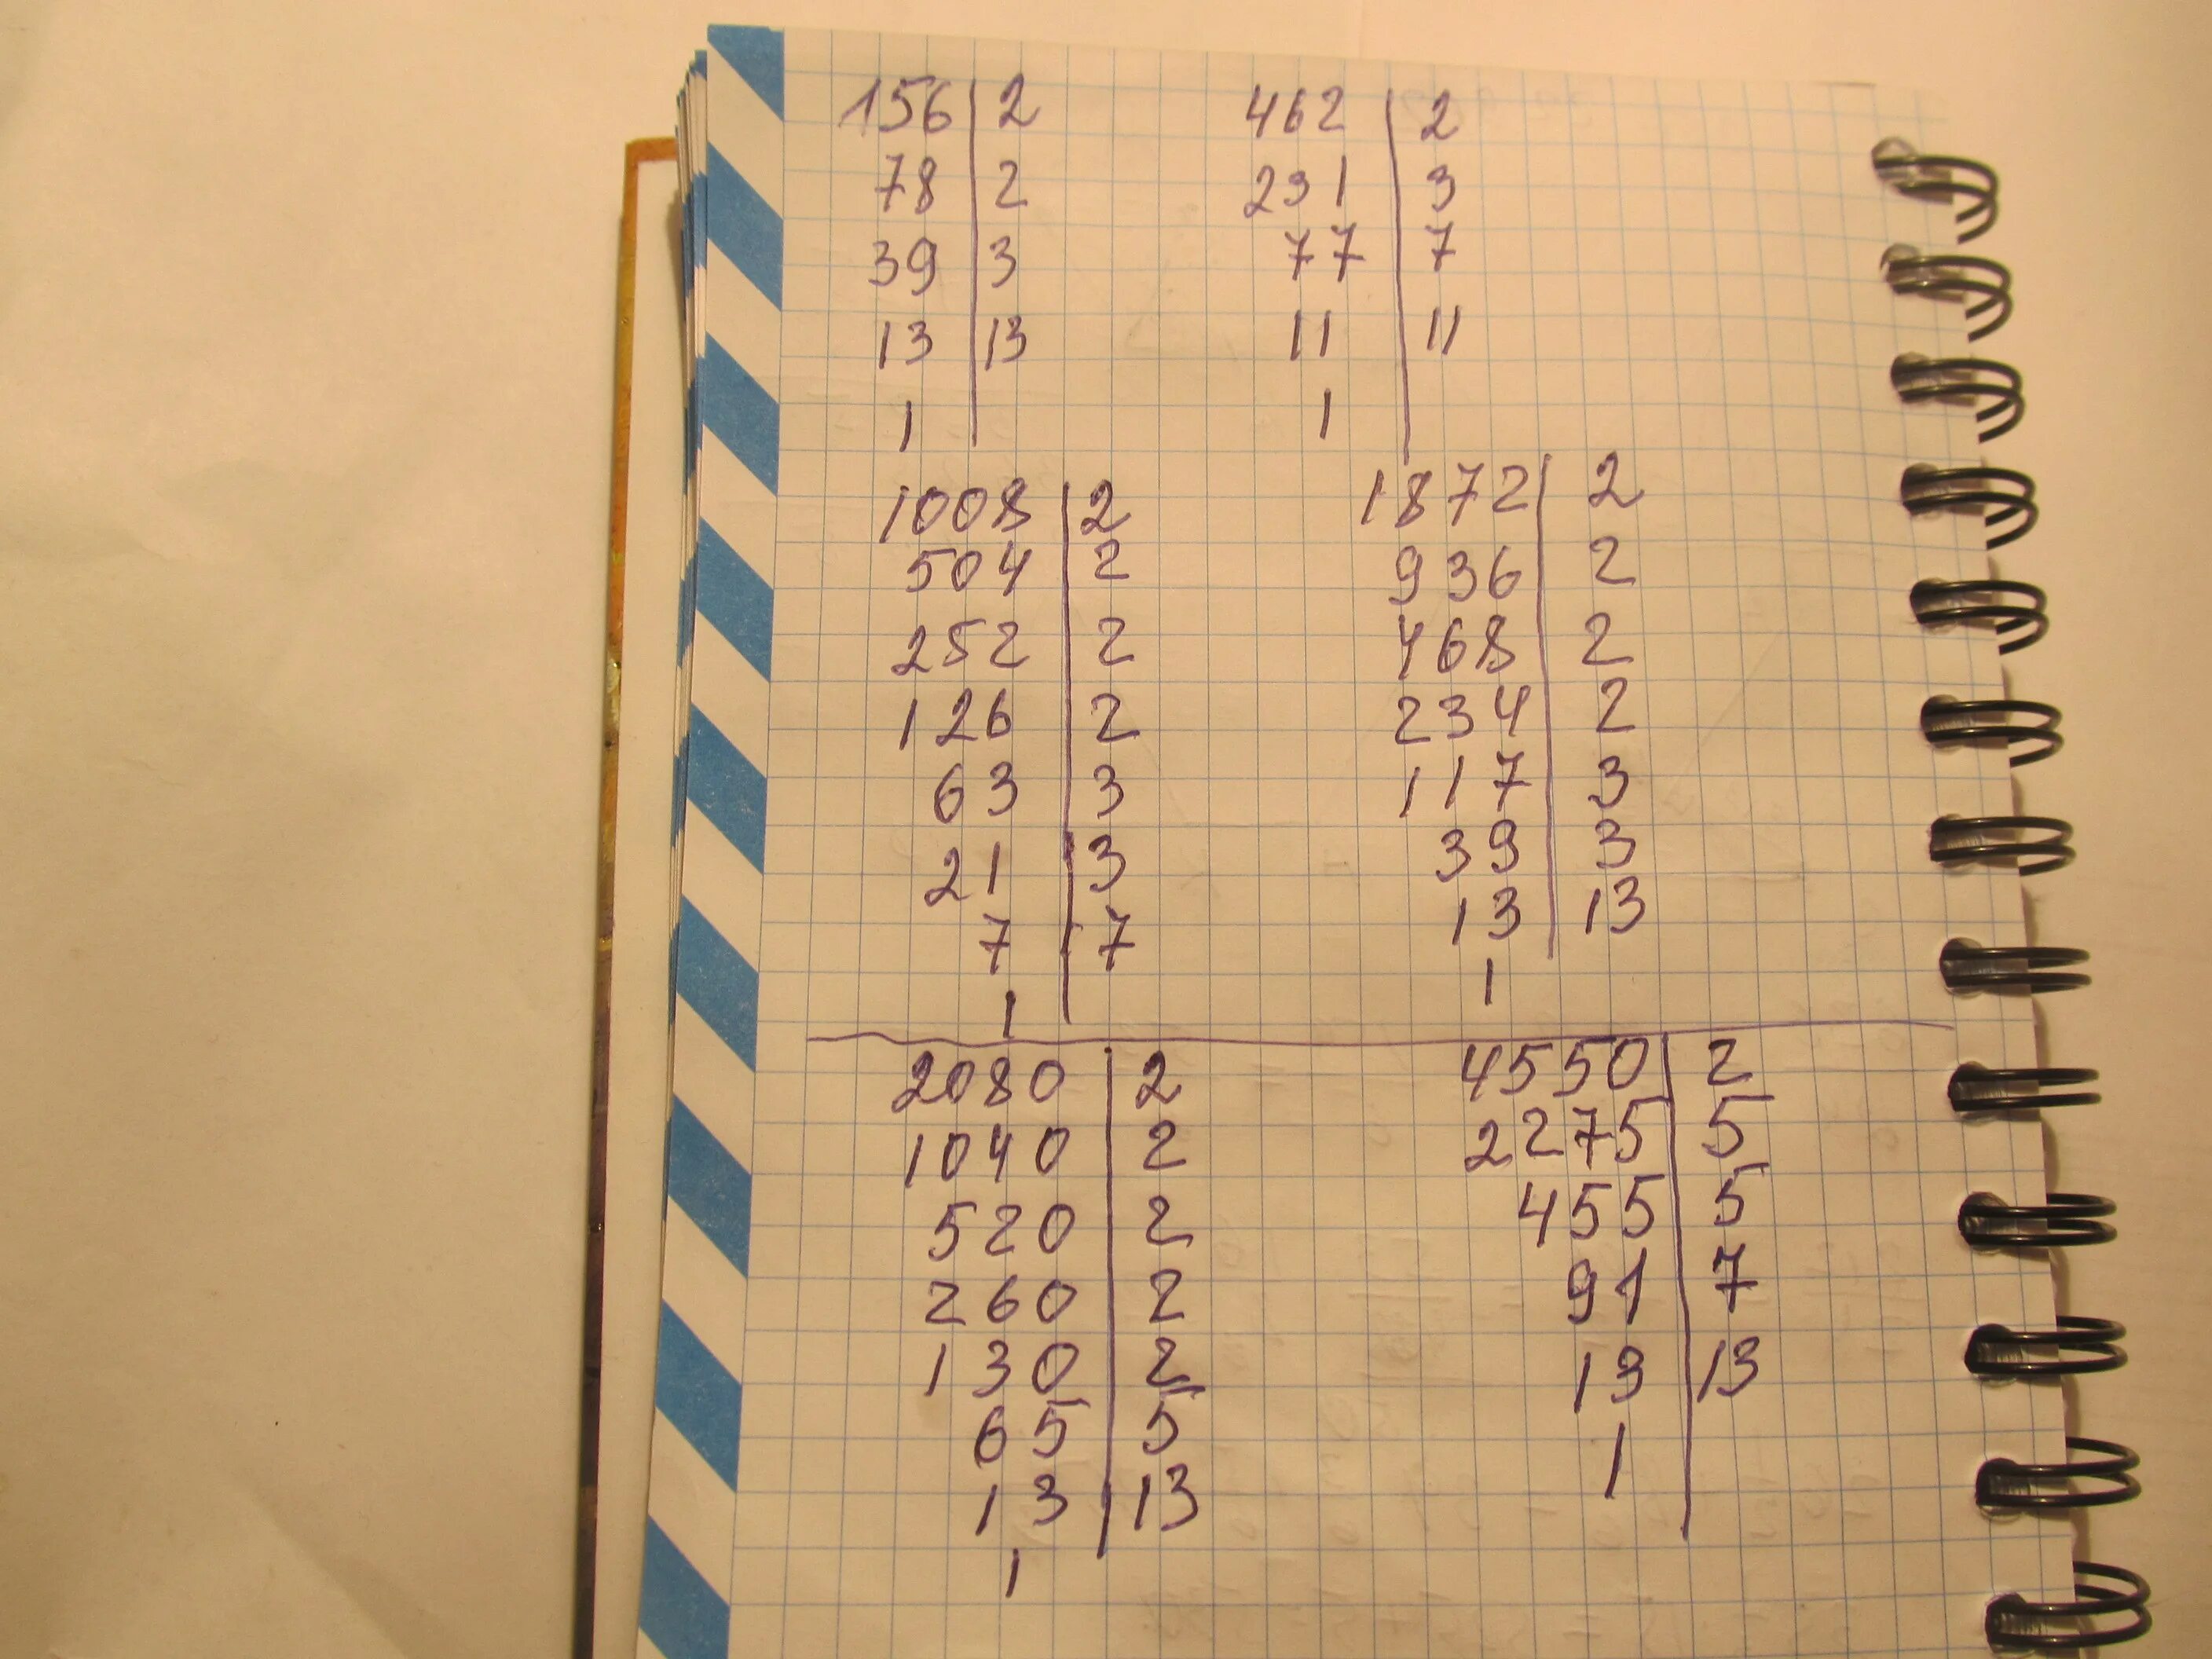 156 | 2 462 | 2
78 | 2 231 | 3
39 | 3 77 | 7
13 | 13 11 | 11
1 | 1 |
1008 | 2 1872 | 2
504 | 2 936 | 2
252 | 2 468 | 2
126 | 2 234 | 2
63 | 3 117 | 3
21 | 3 39 | 3
7 | 7 13 | 13
1 | 1
2080 | 2 4550 | 2
1040 | 2 2275 | 5
520 | 2 455 | 5
260 | 2 91 | 7
130 | 2 13 | 13
65 | 5 1 |
13 | 13
1